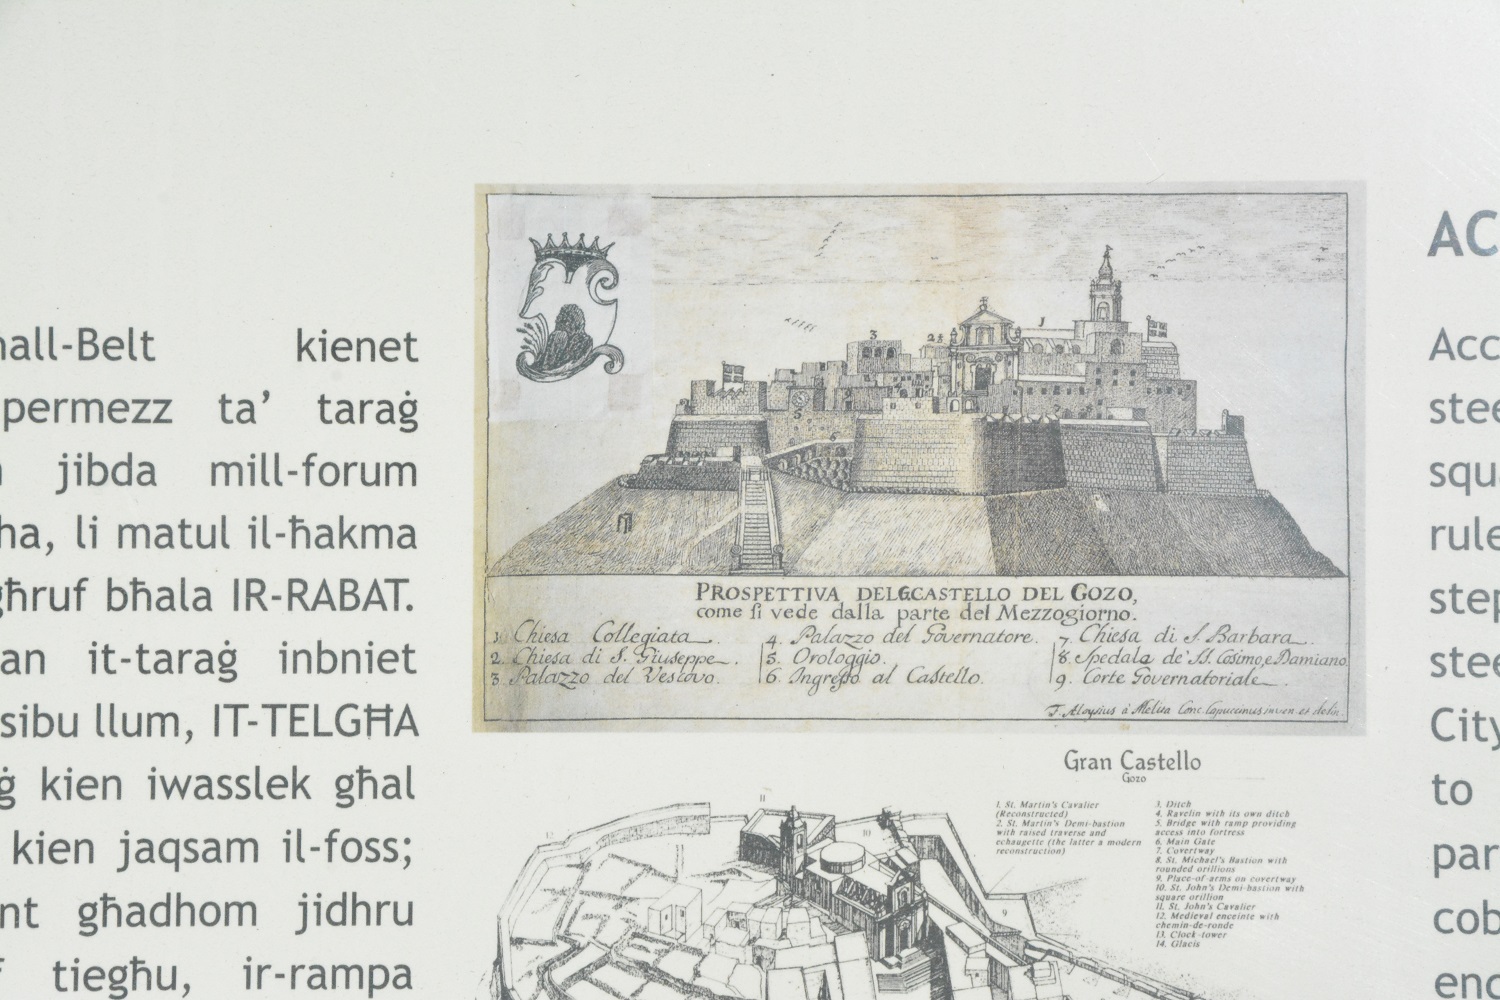 kienet
permezz ta' taraġ
jibda mill-forum
li matul il-ħakma
bħala IR-RABAT.
it-taraġ inbniet
llum, IT-TELGĦA
kien iwasslek għal
kien jaqsam il-foss;
għadhom jidhru
tiegħu, ir-rampa
3
2
1
5
6
7
PROSPETTIVA DEL G. CASTELLO DEL GOZO,
come si vede dalla parte del Mezzogiorno.
1. Chiesa Collegiata.
2. Chiesa di S. Giuseppe.
3. Palazzo del Vescovo.
4. Palazzo del Governatore.
5. Orologgio.
6. Ingresso al Castello.
7. Chiesa di S. Barbara.
8. Spedale de' SS. Cosimo, e Damiano.
9. Corte Governatoriale.
F. Aloysius à Melita Conc. Capuccinus inven. et delin.
Gran Castello
Gozo
1. St. Martin's Cavalier
(Reconstructed)
2. St. Martin's Demi-bastion
with raised traverse and
echaugette (the latter a modern
reconstruction)
3. Ditch
4. Ravelin with its own ditch
5. Bridge with ramp providing
access into fortress
6. Main Gate
7. Covertway
8. St. Michael's Bastion with
rounded orillions
9. Place-of-arms on covertway
10. St. John's Demi-bastion with
square orillion
11. St. John's Cavalier
12. Medieval enceinte with
chemin-de-ronde
13. Clock-tower
14. Glacis
11
12
10
9
to